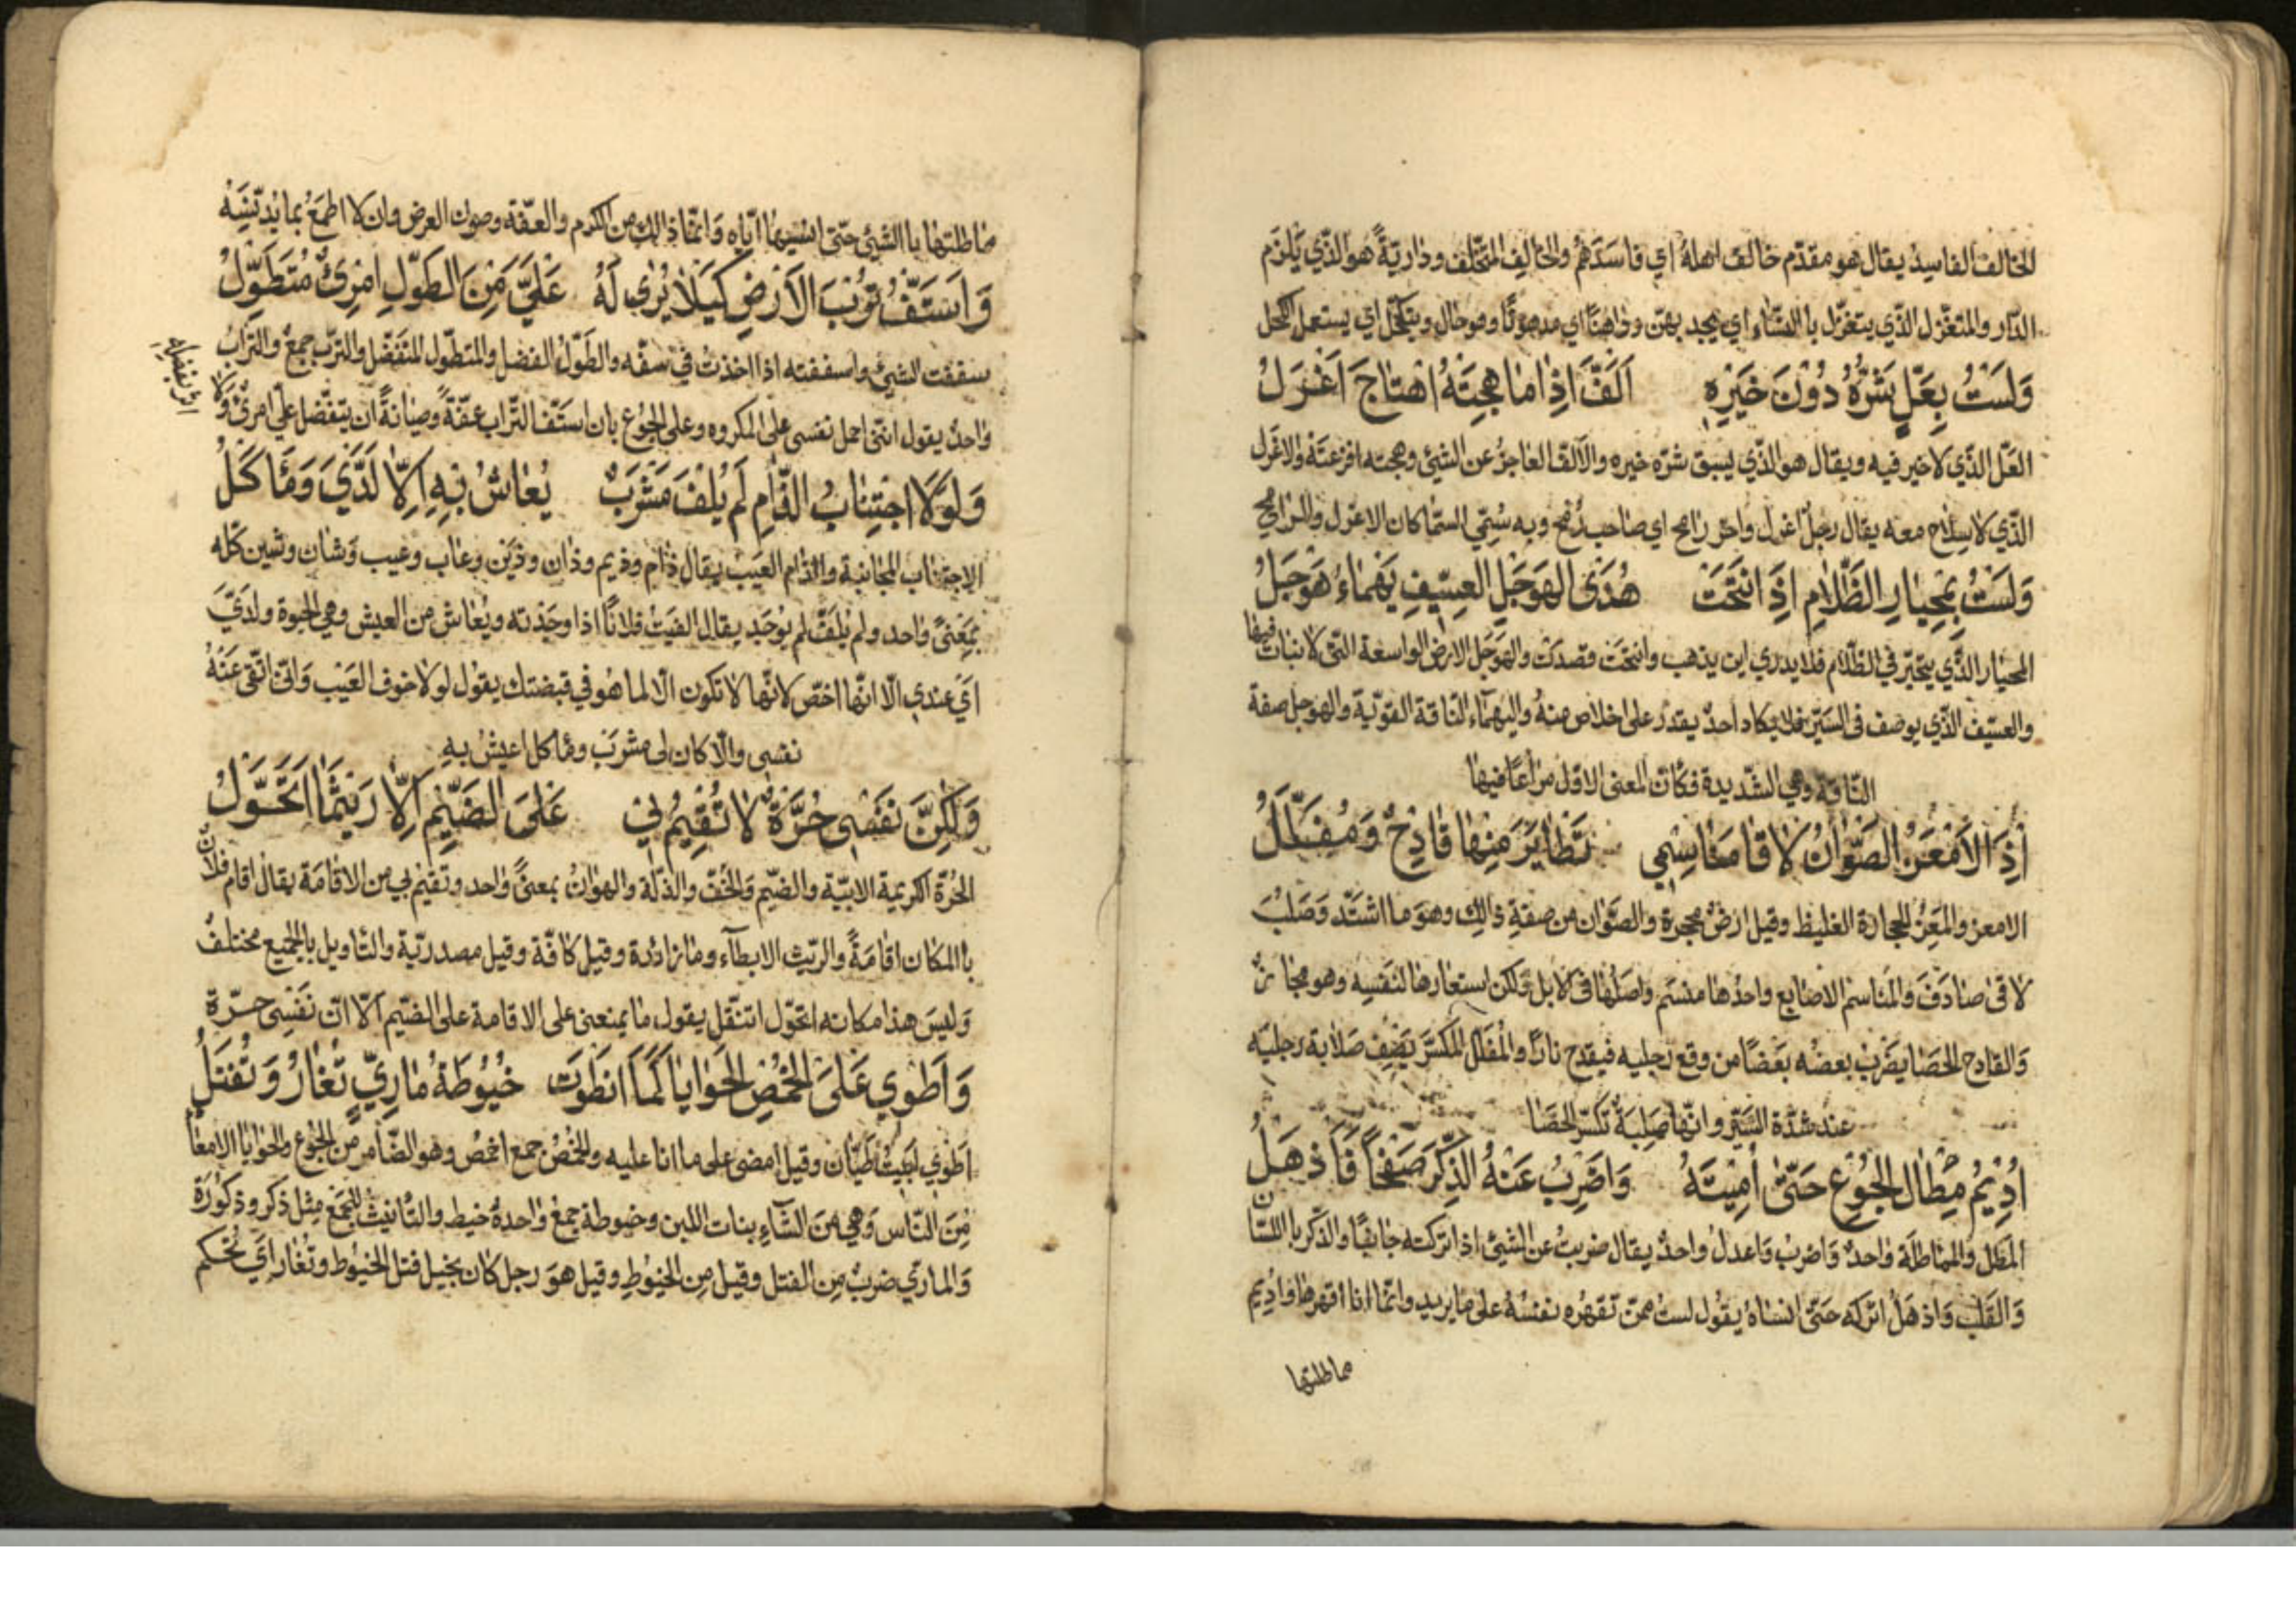 الخالف الفاسد يقال هو مقدّم خالف اهله اي فاسدهم والخالف المتخّلف وداريّة هو الذّي يلزم
الدّار والمتغزّل الذّي يتغزّل با النّساء اي يجد بهنّ وداهنًا اي مدهونًا وهو حال ويتكحّل اي يستعمل الكحل
وَلَسْتُ بِعَلٍّ شَرُّهُ دُوْنَ خَيْرِهِ اَلَفَّ اِذَا مَا هِجْتَهُ اهْتَاجَ اَعْزَلُ
العَلّ الذّي لاخير فيه ويقال هو الذّي يسبق شرّه خيره والالفّ العاجز عن الشئ وهجته افزعته والاعزل
الذّي لاسلاح معه يقال رجل اعزل واخر رامح اي صاحب رُمح وبه سُمّي السّماكان الاعزل والرامح
وَلَسْتُ بِمِحْيَارِ الظَّلَامِ اِذَ انْتَحَتْ هُدَى الهَوْجَلِ العِسّيفِ يَهْمَاءُ هَوْجَلُ
المحيار الذَّي يتحيّر في الظّلام فلا يدري اين يذهب وانتحَت قصدَت والهوجل الارض الواسعة التّى لا نبات فيها
والعسّيف الذّي يوصف فى السّير فلا يكاد احدٌ يقدر على خلاص منهُ واليهمآء النّاقة القوّية والهوجل صفة
النّاقة وهي الشّديدة فكانّ المعنى الاوّل مراعًا فيها
اِذَ الاَمْعَزُ الصَّوَّانُ لَاقَا مَنَاسِمِي تَطَايَرَ مِنْهَا قَادِحٌ وَمُفَلَّلُ
الامعز والمَعِزُ الحجارة الغليظ وقيل ارضٌ محجرة والصَوّان من صفةِ ذالك وهوَ ما اشتَدّ وَصَلُبَ
لاقى صَادَفَ والمناسم الاصابع واحدُها منسم واصلُها فى الابل وَلكن استعارها لنفسِه وهو مجازٌ
وَالقادح الحصا يضرب بعضُه بعَضًا من وقع رجليه فيقدح نارًا والمُفلّل المكسَّر يَصِف صَلابة رجليَه
عند شدّة السَّيْر وانّها صَلِبَةٌ تكسّر الحصَا
اُدِيْمُ مِطَالَ الجُوْعِ حَتّىٰ اُمِيْتَهُ وَاضْرِبُ عَنْهُ الذِّكْرَ صَفْحًا فَاَذْهَلُ
المَطل والمماطلَة وَاحدٌ وَاضرب وَاعدل وَاحدٌ يقال ضربتُ عن الشئ اذا تركته جانبًا والذّكر با اللسَان
وَالقَلب وَاذهَلُ اتركه حَتّىٰ انساهُ يقول لست ممّن تقهرُه نفسُهُ على ما يريد وانّما انا اقهرها وَاديم
مماطلتها
مماطلتها با الشئ حتّى انسيها ايّاه وَانّما ذالك من الكرم والعفّة وصون العرض وان لا اطمع بما يدنّسُه
وَاَسْتَفُّ تُرْبَ الاَرْضِ كَيْلَا يُرٰى لَهُ عَلَيَّ مِنَ الطَوْلِ امْرِئٌ مُتَطَوِّلُ
سففت الشئ واسففته اذا اخذت في سفّه والطَوْل الفضل والمتطوّل المتفضّل والترّب جمعٌ والترّابُ
وَاحدٌ يقول انّنى احمل نفسى على المكروه وعلى الجوُع بان استفّ الترّاب عفّةً وصيانةً ان يتفضّل عليّ امرئٌ وَلَا
وَلَوْلَا اجْتِنَابُ الذَّامِ لَمْ يُلْفَ مَشْرَبٌ يُعَاشُ بِهِ اِلّا لَدَيَّ وَمَاكَلُ
الاجتناب المجانبة والذّام العَيب يقال ذام وذيم وذان وذين وعَاب وعيب وَشان وشين كلّه
بمَعَنىً وَاحد ولم يُلفَ لم يوجَد يقال الفيتُ فلانًا اذا وجَدته ويُعَاش من العيش وهي الحيوة ولديَّ
اَيْ عندي الّا انّها اخصّ لانّها لا تكون الّا لما هو في قبضتك يقول لولا خوف العَيْب وَانّى اتّقى عَنْهُ
نفسى والّا كان لى مشرَبٌ وماكل اعيش به
وَلَكِنَّ نَفْسِى حُرَّةٌ لَا تُقِيْمُ لِي عَلىَ الضَيْمِ اِلّا رَيْثَمَا اَتَحَوَّلُ
الحُرّة الكريمة الابيّة والضَيْم وَالخسْف والذلّة والهوَانُ بمعنىً وَاحد وتقيم لي من الاقامَة يقال اقام فلانٌ
با المكان اقامَةً والرّيث الابطآء ومَا زائدة وقيل كافّة وقيل مصدريّة والتاويل با الجميع مختلفٌ
وَليسَ هذا مكانه اتحَوّل انتقل يقول ما يمنعنى على الاقامة على الضَيم الّا انّ نفسِى حرّة
وَاَطْوِي عَلىَ الخُمْصِ الحَوَايَا كَمَا انْطَوَتْ خُيُوْطَةُ مَارِيٍّ تُغَارُ وَتُفْتَلُ
اَطوي اَبيتُ طيّان وقيل امضى على ما انا عليه والخُمْصُ جمع اخمصُ وهو الضّامر من الجوُع والحوَايَا الامعَاء
مِنَ النّاس وَهي مِنَ الشّآءِ بنات اللبن وخيوطة جمعٌ وَاحدهُ خيط والتّانيث للجمَع مِثل ذكر وذكورَة
وَالمارِّي ضربٌ مِن الفتل وقيل مِن الخيُوطِ وقيل هوَ رجل كان يجيل فتل الخيُوط وتُغار اَيْ تُحكم